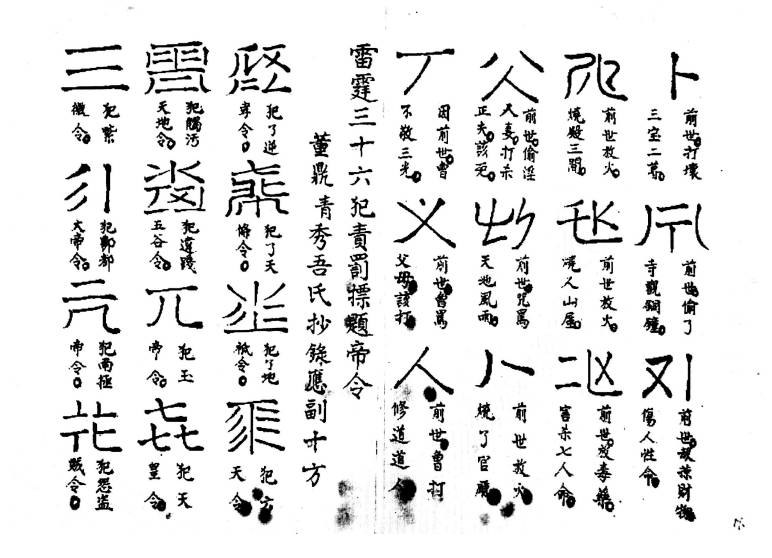 前世打壞
三宝二
前世偷了
寺觀銅鐘
前世財物
傷人性命
前世放火
燒殿三間
前世放火
燒人山屋
前世放毒藥
害杀七人命
前世偷淫
人妻打杀
正夫該死
前世咒罵
天地風雨
前世放火
燒了官廳
因前世曾
不敬三光
前世曾罵
父母該打
前世曾打
修道道人
雷霆三十六犯責罰摽題帝令
董鼎青秀吾氏抄錄應副十方
犯了逆
令
犯了天
將令
犯了地
祇令
犯玄
天令
犯觸污
天地令
犯遭踐
五谷令
犯玉
帝令
犯天
皇令
犯紫
微令
犯酆都
大帝令
犯南極
帝令
犯怨盜
賊令